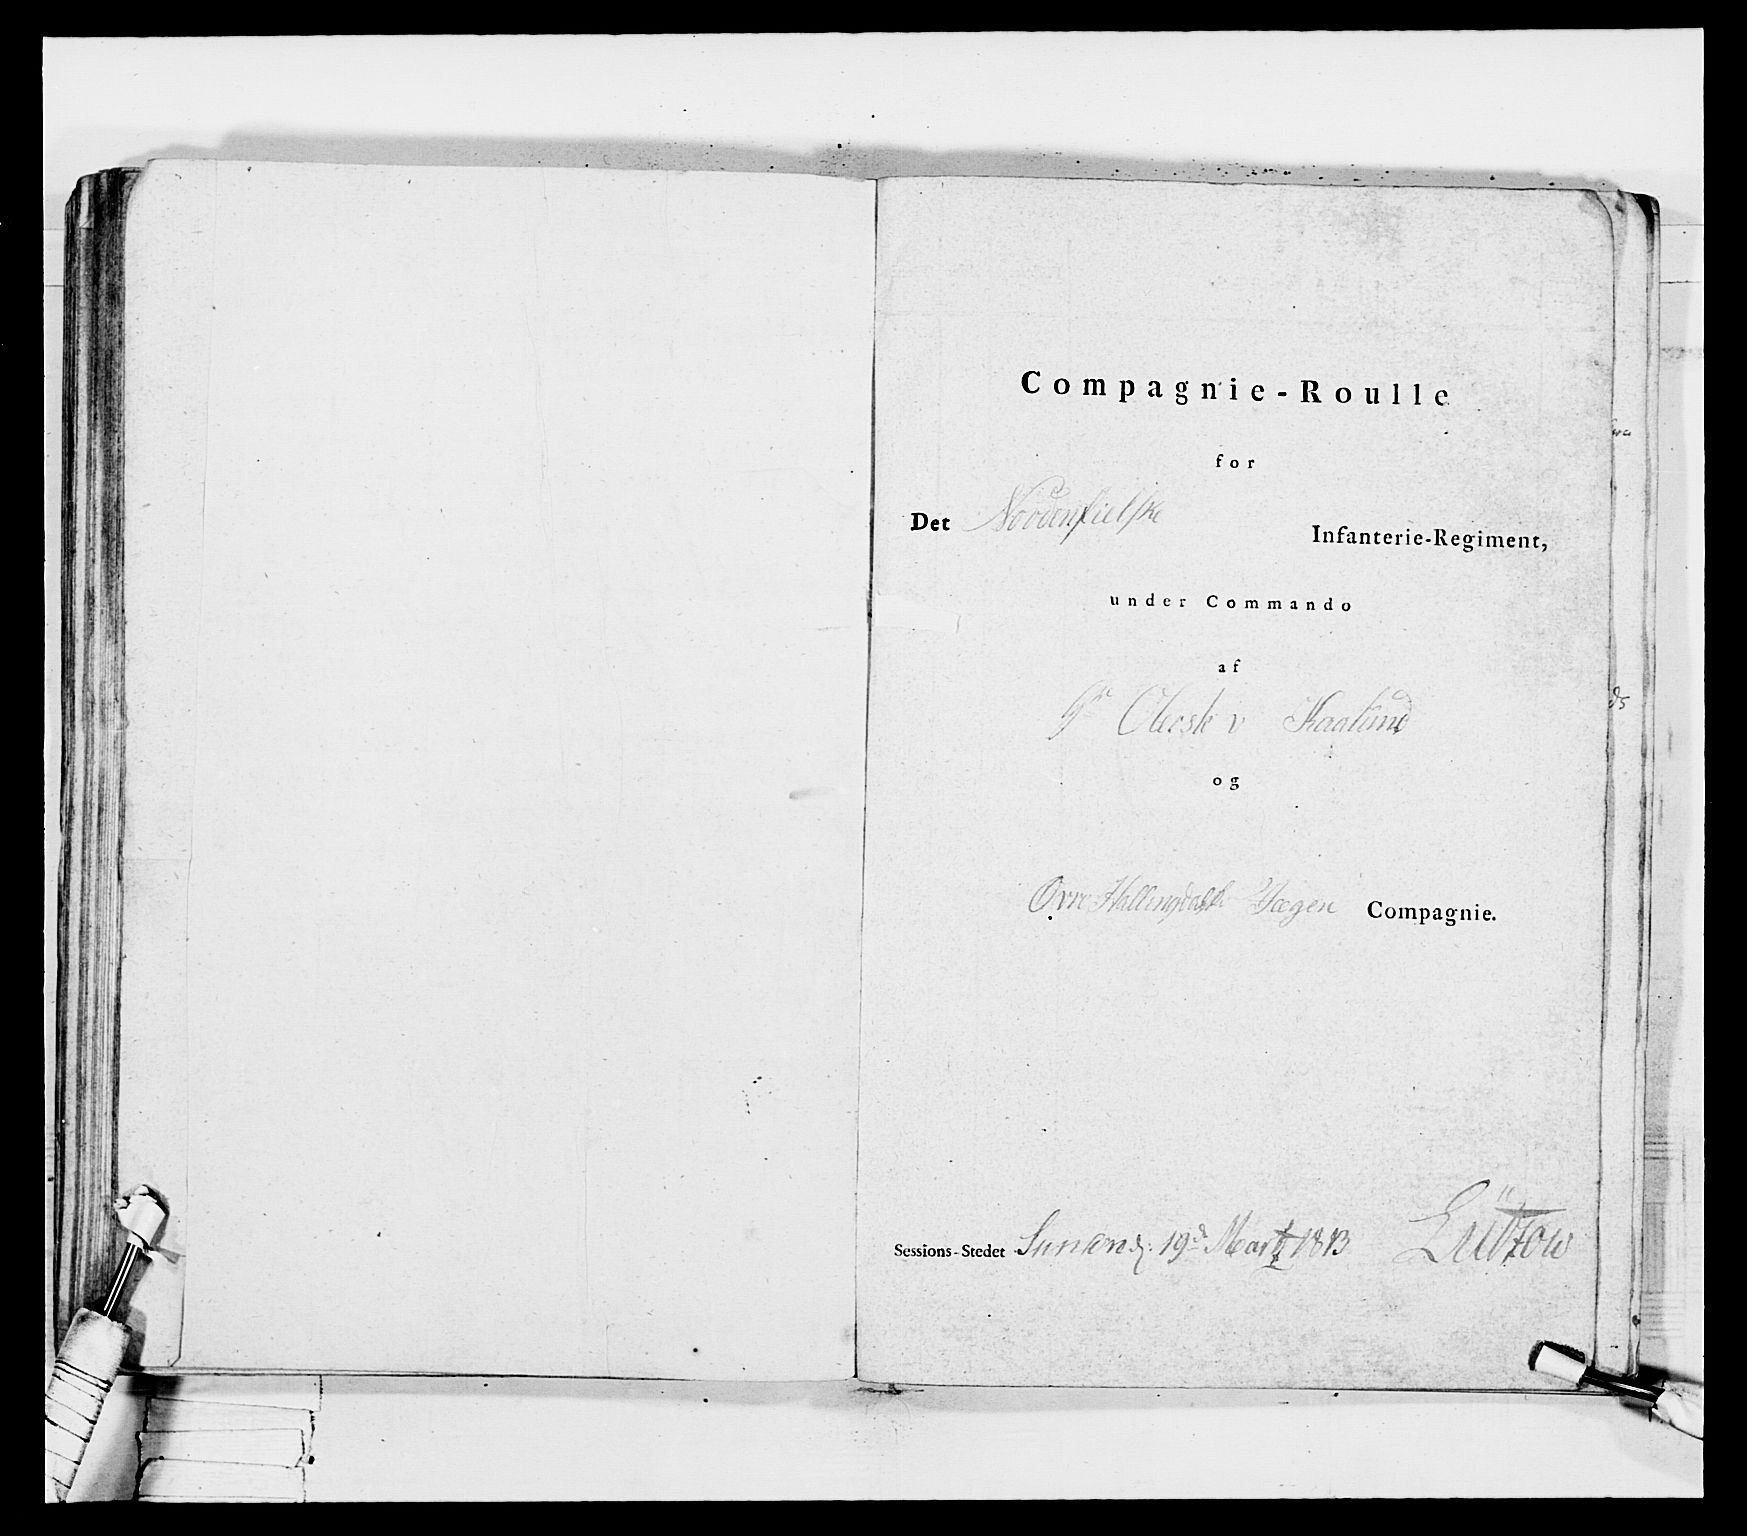 Compagnie-Roulle
for
Det Nordenfielske Infanterie-Regiment,
under Commando
af
Hr Oberst v Kaalund
og
Øvre Hallingdalske Jæger Compagnie.
Sessions-Stedet 19de Marty 1813 Lützow
ds